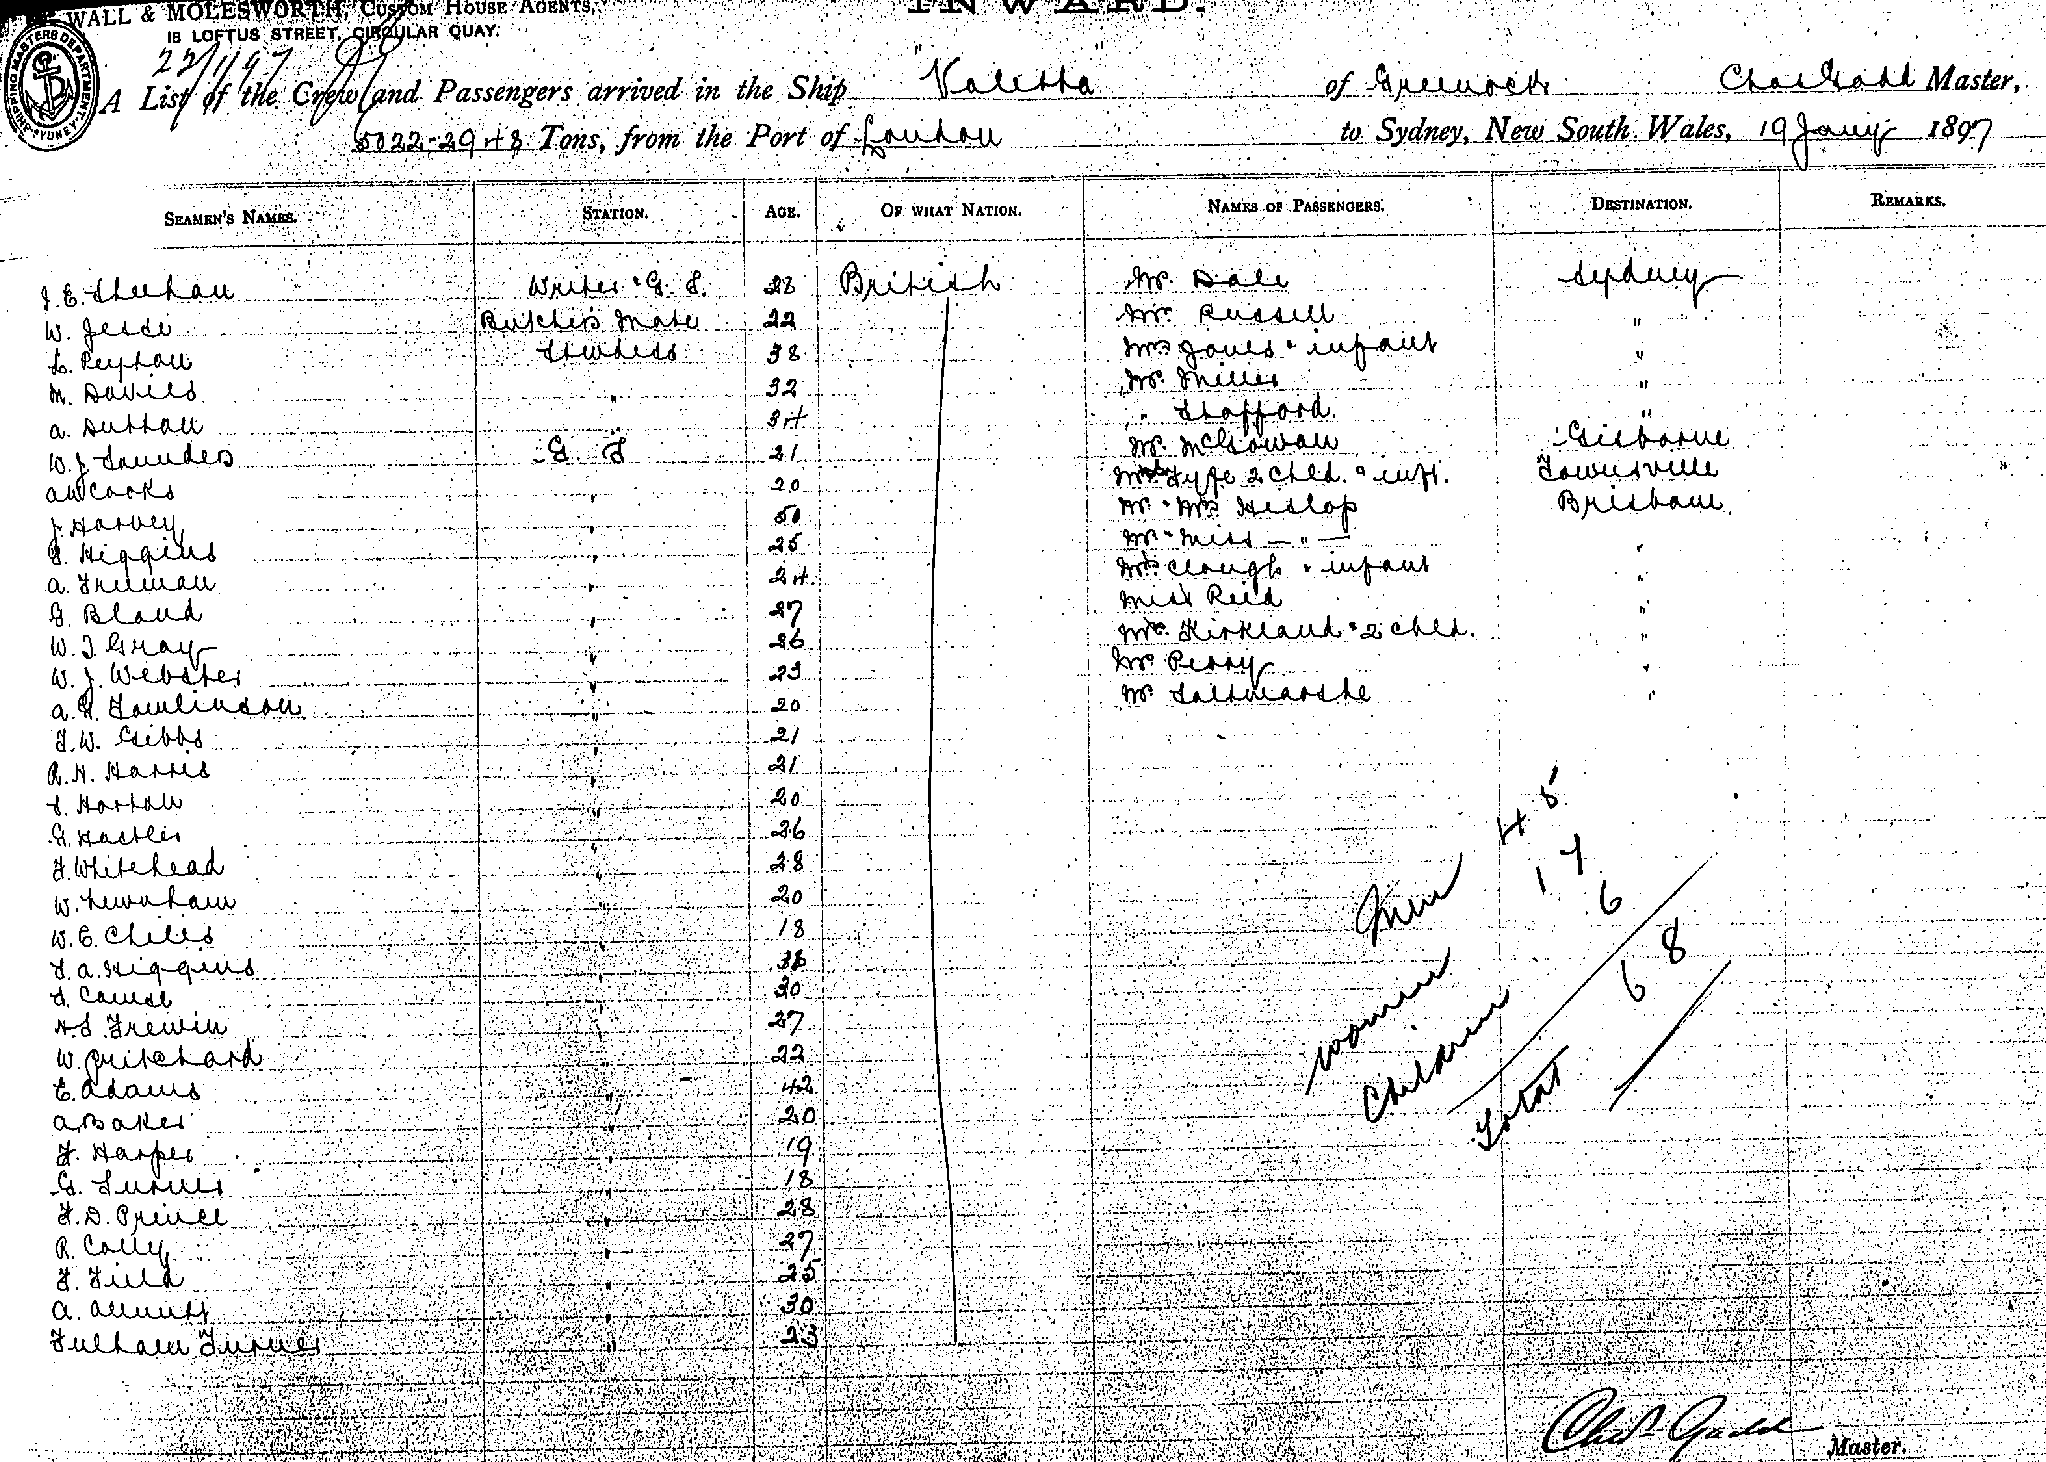 INWARD.
WALL & MOLESWORTH, CUSTOM HOUSE AGENTS,
18 LOFTUS STREET, CIRCULAR QUAY.
SHIPPING MASTERS DEPARTMENT SYDNEY
22/1/97
A List of the Crew and Passengers arrived in the Ship Valetta of Greenock Chas Gadd Master,
5022-29/48 Tons, from the Port of London to Sydney, New South Wales, 19 Jany 1897
SEAMEN'S NAMES. STATION. AGE. OF WHAT NATION. NAMES OF PASSENGERS. DESTINATION. REMARKS.
J. E. Sheehan Writer & G. S. 28 British Mr. Dale Sydney
W. Jesse Butchers Mate 22 Mr. Russell "
L. Peyton Stewdess 38 Mrs Jones & infant "
M. Davies " 32 Mr. Miller "
A. Dutton 34 " Stafford. "
W. J. Saunders G. S 21 Mr. McGowan Gisborne
A W Cooks " 20 Mrs Fyfe 2 Chld. & inft. Townsville "
J. Harvey " 50 Mr & Mrs Heslop Brisbane.
G. Higgins " 25 Mr & Miss — " — "
A. Freeman " 24 Mrs Clough & infant "
G. Bland " 27 Miss Reid "
W. T Gray " 26 Mrs. Kirkland & 2 Chld. "
W. J. Webster " 23 Mr Perry "
A. H. Tomlinson " 20 Mr Saltmarshe "
F. W. Gibbs " 21
R. H. Harris " 21
S. Horton " 20
G. " 26
F. Whitehead " 28
W. Newnham " 20
W. E. Chiles " 18
F. A. Higgins " 36
S. " 30
H. S. Frewin " 27
W. Pritchard " 22
E. Adams " 42
A. Baker " 20
F. Harper " 19
G. Turner " 18
F. D. Prince " 28
R. Colley " 27
F. Field " 25
A. " 30
Fulham Turner " 23
Men 45
Women 17
Children 6
Total 68
Chas Gadd Master.